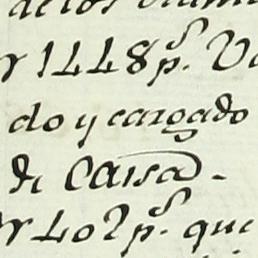 de los
r 1448 p.s V
do y cargado
de Caisa.
r 402 p.s que